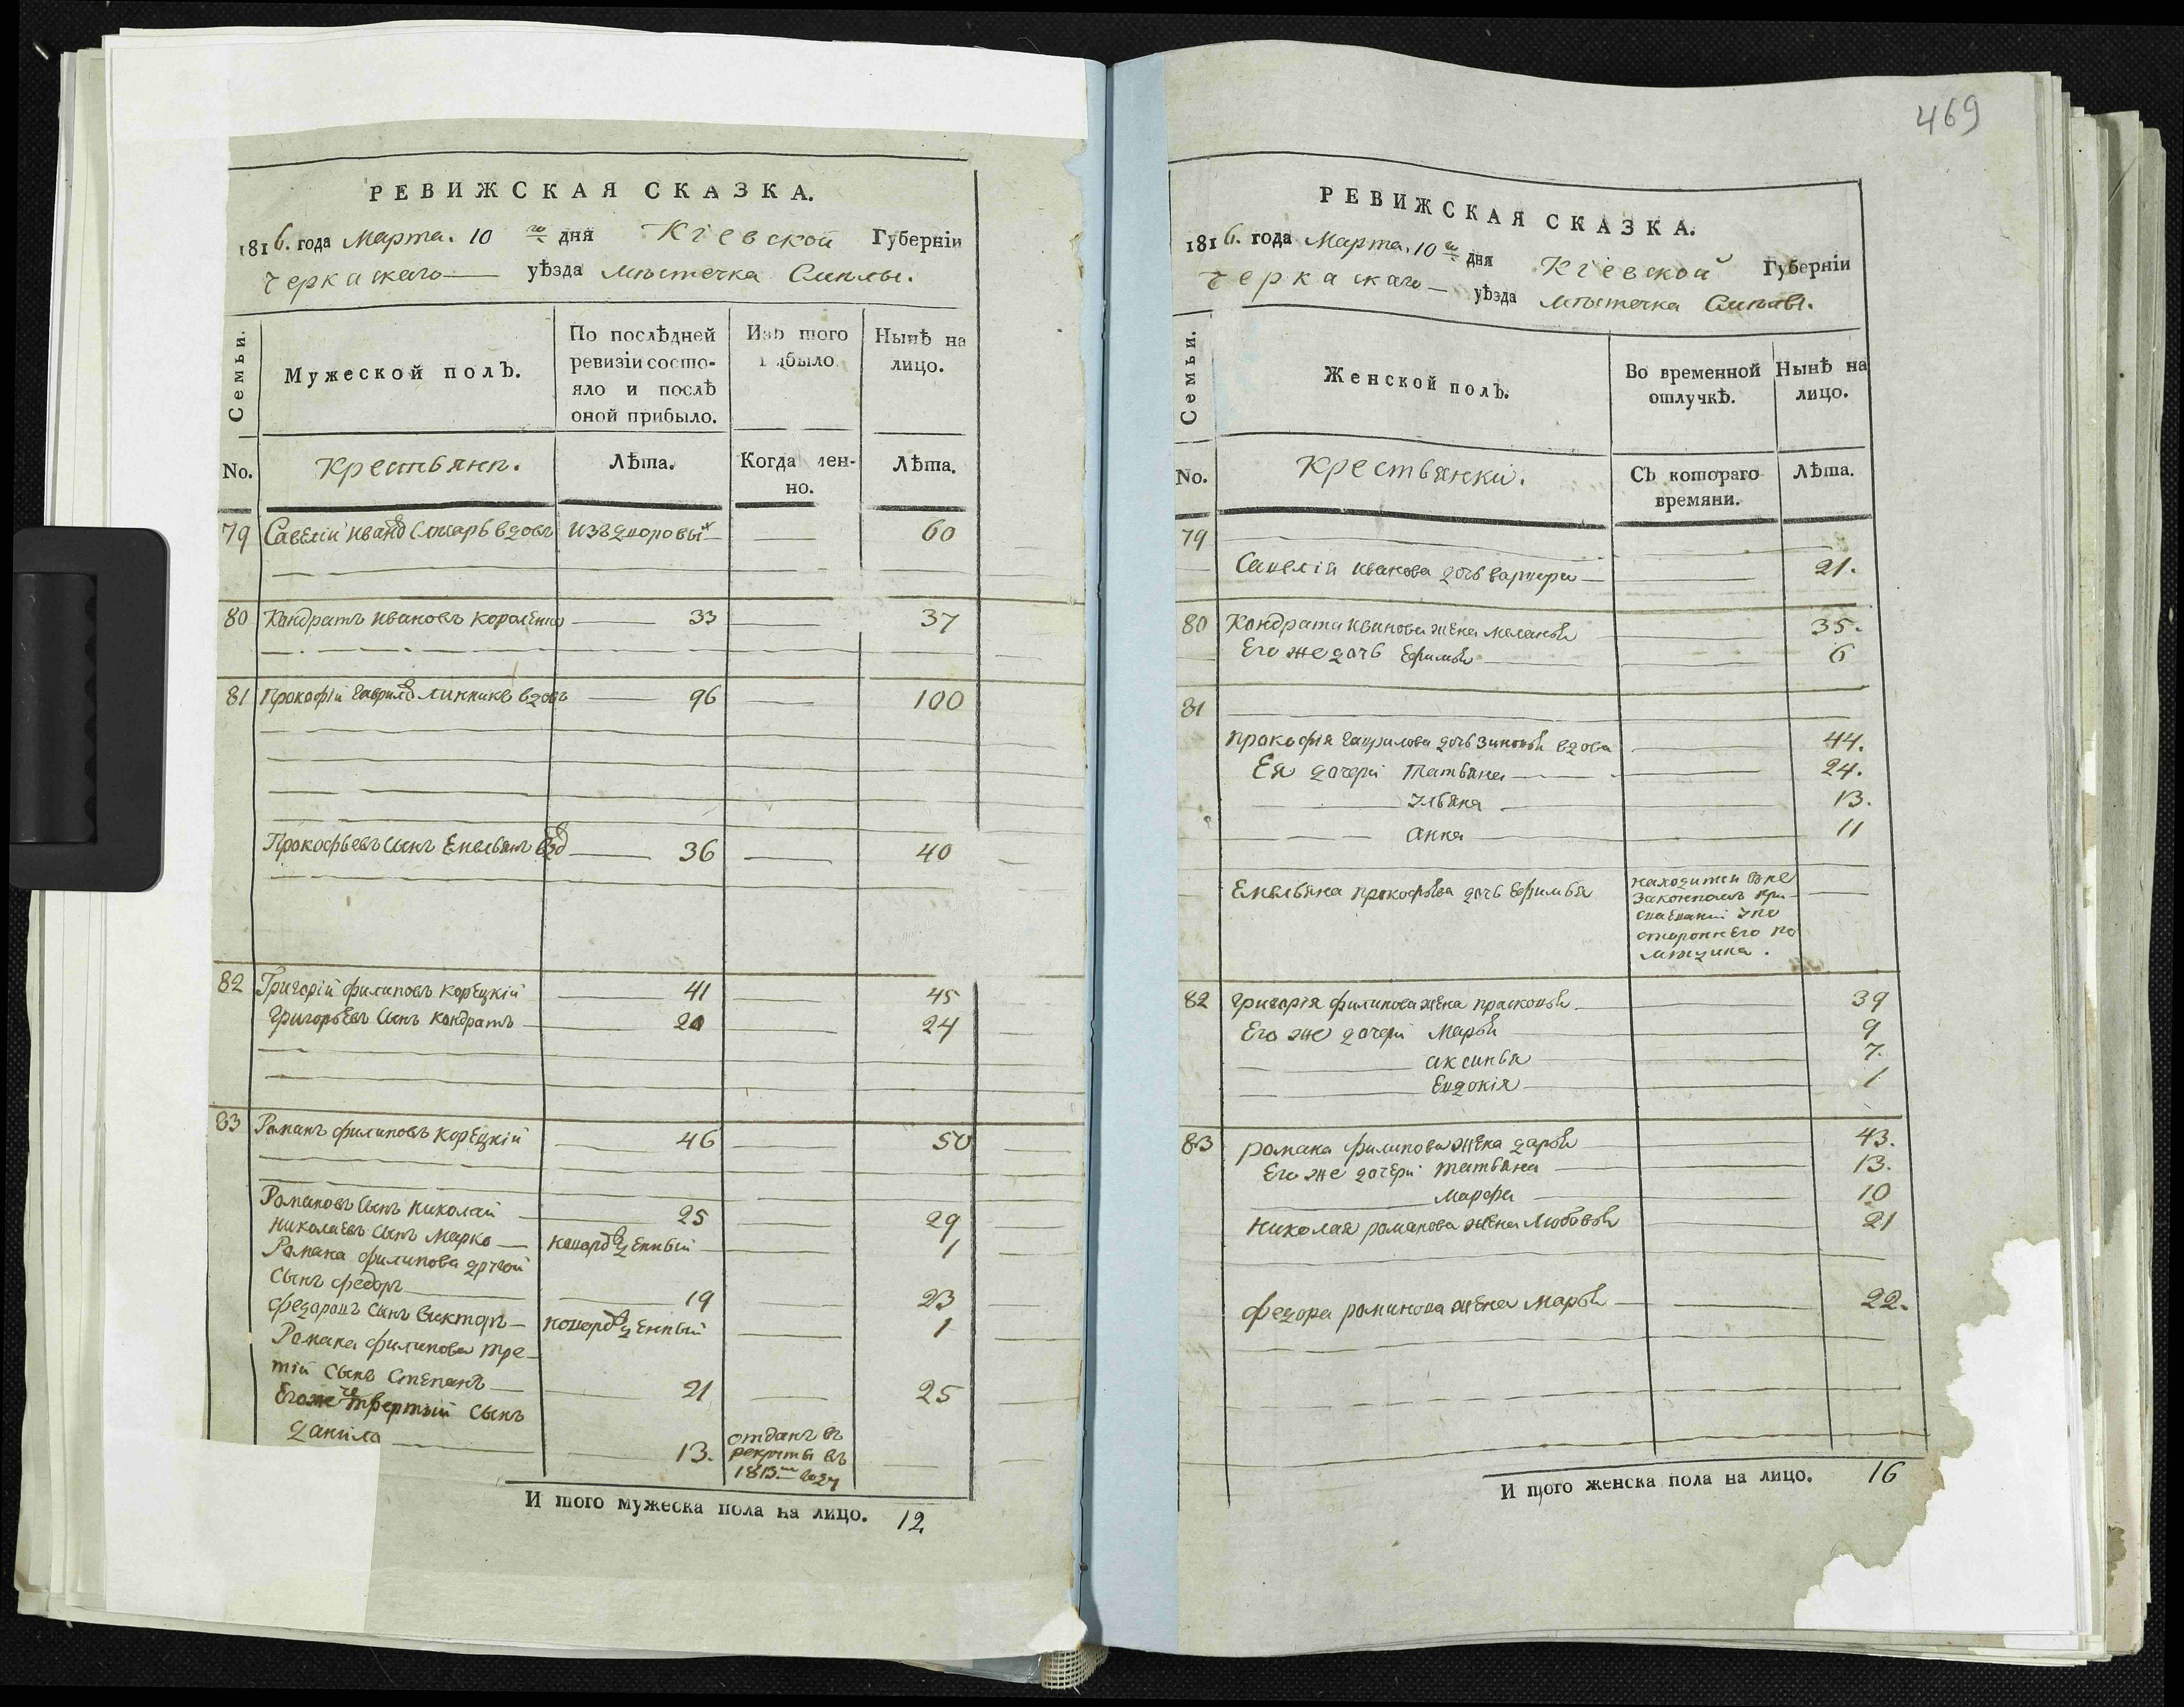 469
РЕВИЖСКАЯ СКАЗКА.
1816. года Марта. 10 го дня Кіевской Губерніи
Черкаскаго уѣзда мѣстечка Смѣлы.
Семьи.
Мужеской полъ.
По послѣдней ревизіи состо-
яло и послѣ
оной прибыло.
Изъ того
Нынѣ на
лицо.
No.
Крестьяни.
Лѣта.
Когда мен-
но.
Лѣта.
79 Савелій Иванов вдовъ 60
80 Кондратъ Ивановъ 33 37
81 Прокофій Гаврилов Линникъ вдовъ 96 100
Прокофьевъ сынъ Емельянъ вдо 36 40
82 Григорій Филиповъ Корецкій 41 45
Григорьевъ сынъ Кондратъ 20 24
83 Романъ Филиповъ Корецкій 46 50
Романовъ сынъ Николай 25 29
Николаевъ сынъ Марко новорожденный 1
Романа Филипова другой
сынъ Федоръ 19 23
Федоровъ сынъ Викторъ новорожденный 1
Романа Филипова тре-
тій сынъ Степанъ 21 25
Его же четвертый сынъ
Данило 13. отданъ въ
рекруты въ
1813.м году
И того мужеска пола на лицо. 12
РЕВИЖСКАЯ СКАЗКА.
1816. года Марта. 10 го дня Кіевской Губерніи
Черкаскаго уѣзда мѣстечка Смѣлы.
Семьи.
Женской полъ.
Во временной
отлучкѣ.
Нынѣ на
лицо.
No.
Крестьянки.
Съ котораго
времяни.
Лѣта.
79
Савелія Иванова дочь Варвара 21.
80 Кондрата Иванова жена Меланья 35.
Его же дочь Ефимья 6
81
Прокофія Гаврилова дочь Зиновья вдова 44.
Ея дочери Татьяна 24.
Ульяна 13.
Анна 11
Емельяна Прокофьева дочь Ефимья
находится въ не
законномъ
стороннего по
мѣщика.
82 Григорія Филипова жена Прасковья 39
Его же дочери Марья 9
Аксинья 7.
Евдокія 1
83 Романа Филипова жена Дарья 43.
Его же дочери Татьяна 13.
Марфа 10
Николая Романова жена Любовья 21
Федора Романова жена Марья 22.
И того женска пола на лицо. 16